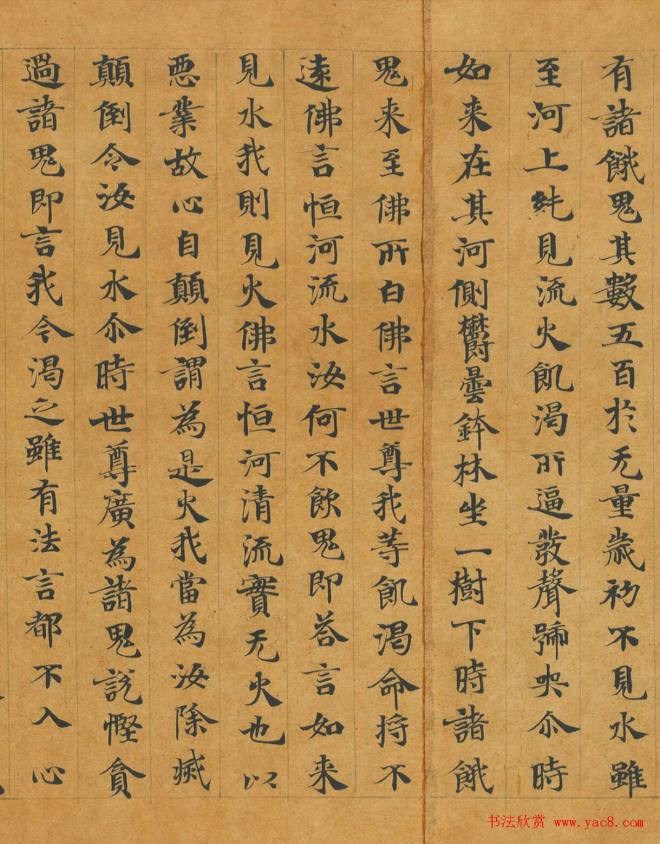 有諸餓鬼其數五百於无量歲初不見水雖
至河上純見流火飢渴所逼發聲號哭尒時
如来在其河側欝曇鉢林坐一樹下時諸餓
鬼来至佛所白佛言世尊我等飢渴命將不
遠佛言恒河流水汝何不飲鬼即荅言如来
見水我則見火佛言恒河清流實无火也以
惡業故心自顛倒謂為是火我當為汝除滅
顛倒令汝見水尒時世尊廣為諸鬼說慳貪
過諸鬼即言我今渴乏雖有法言都不入心
书法欣赏 www.yac8.com